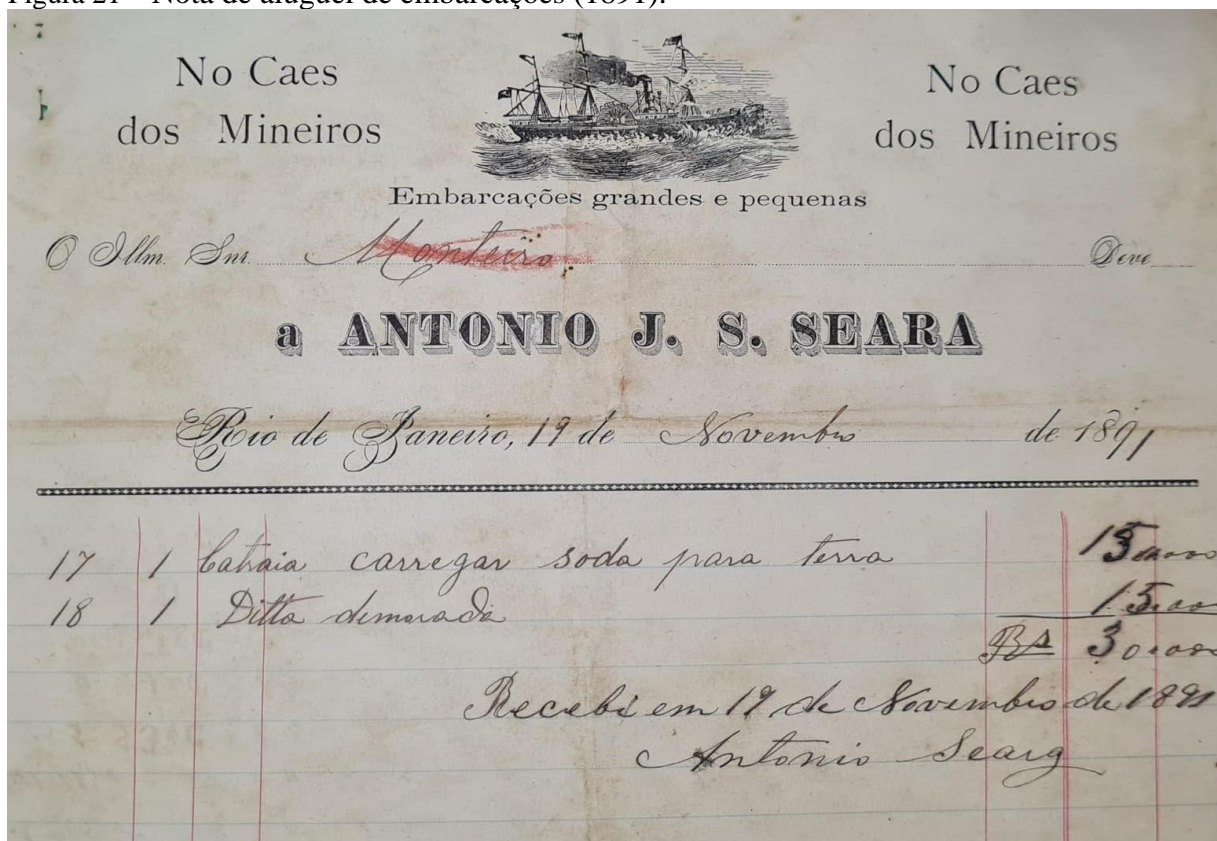 Figura 21 – Nota de aluguel de embarcações (1891).
No Caes
dos Mineiros
No Caes
dos Mineiros
Embarcações grandes e pequenas
O Illm. Snr. Monteiro Deve
a ANTONIO J. S. SEARA
Rio de Janeiro, 19 de Novembro de 1891
17 1 Catraia carregar soda para terra 15
18 1 Ditta demorada 15
Rs 30.000
Recebi em 19 de Novembro de 1891
Antonio Seara